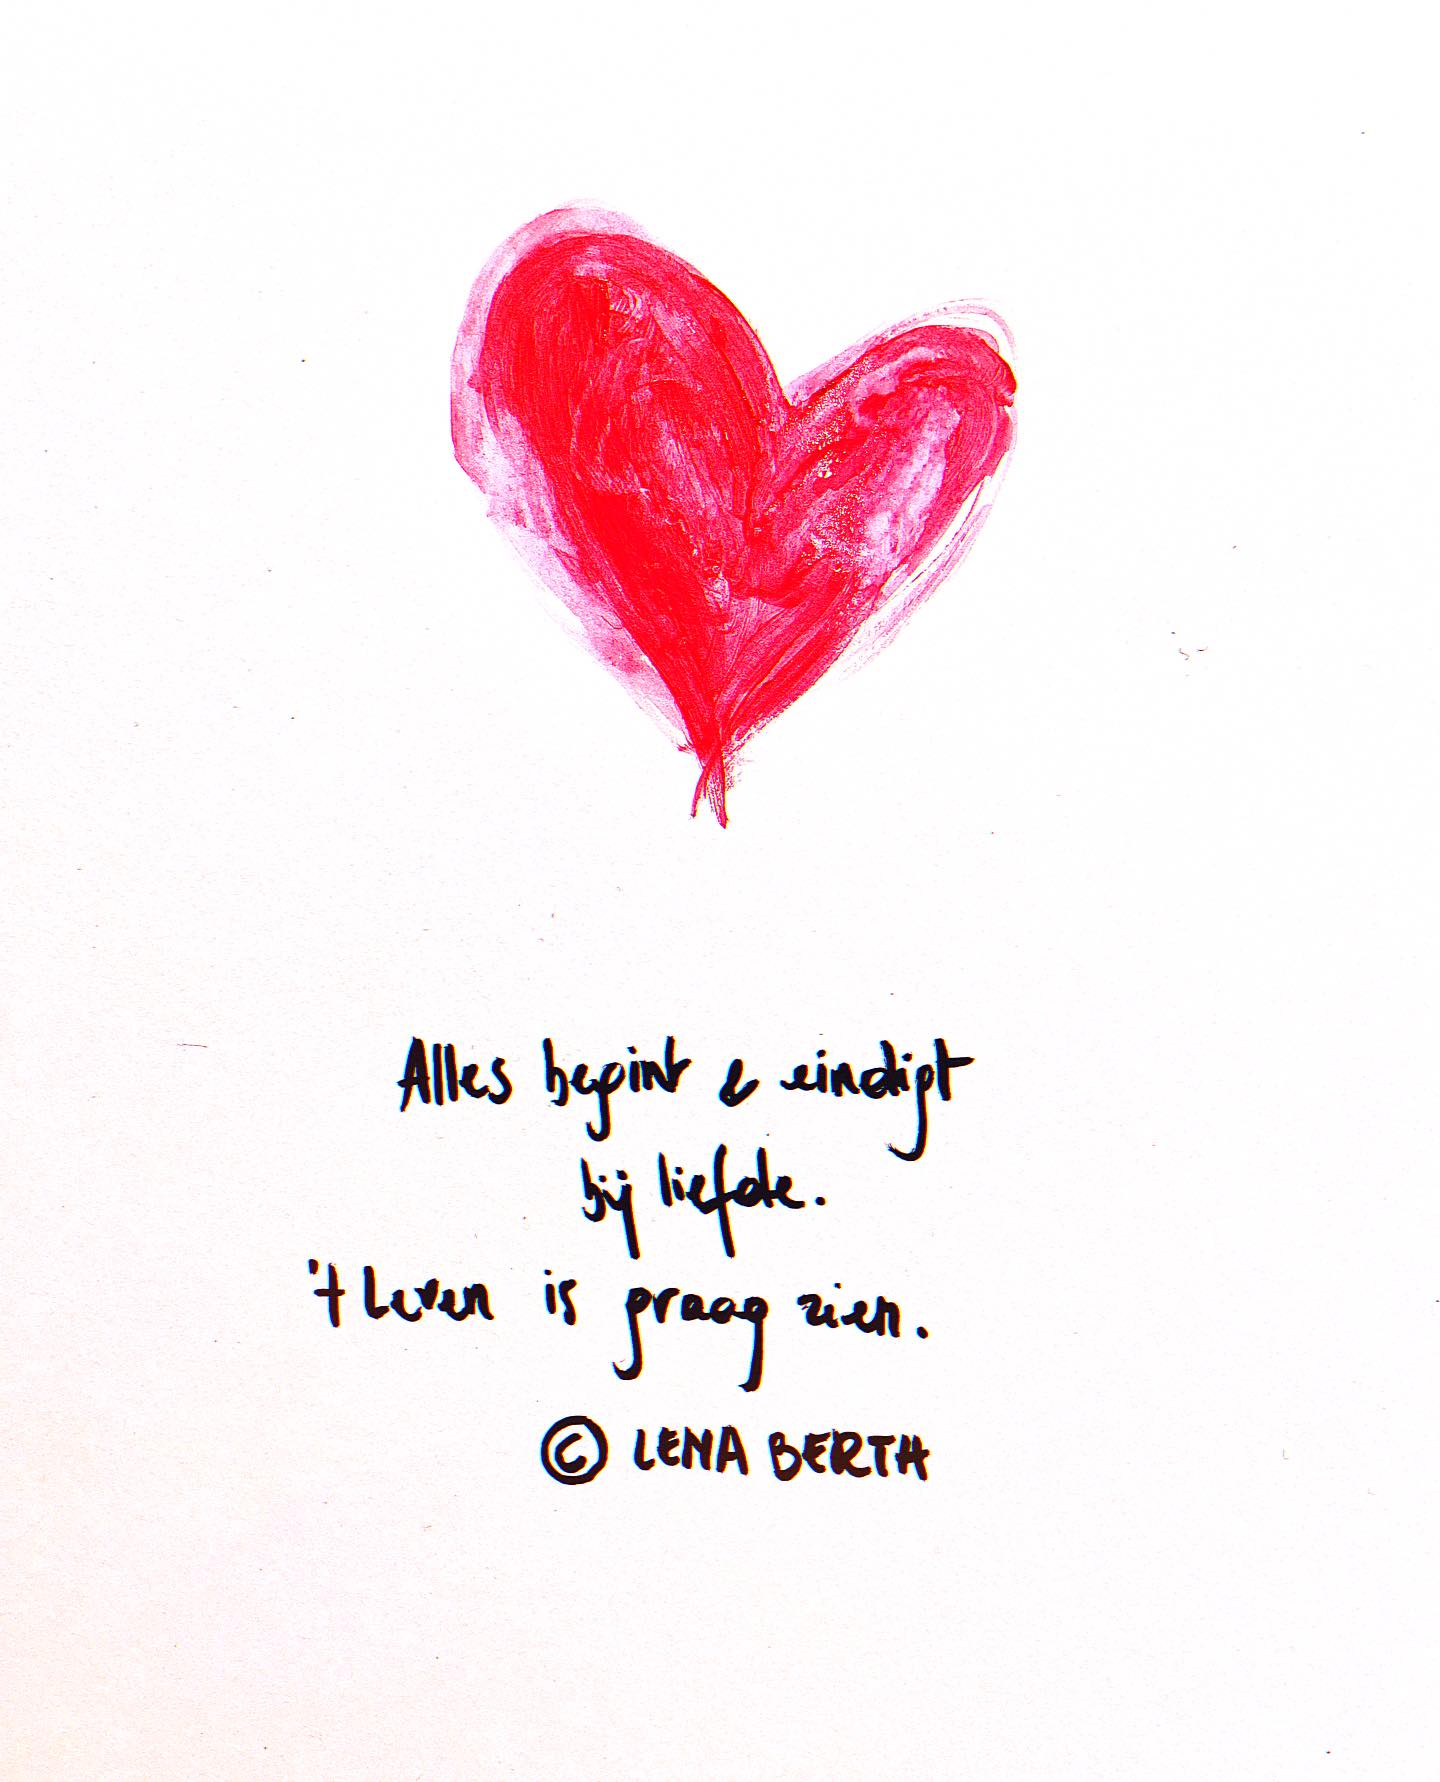 Alles begint & eindigt
bij liefde.
't Leven is graag zien.
© LENA BERTH